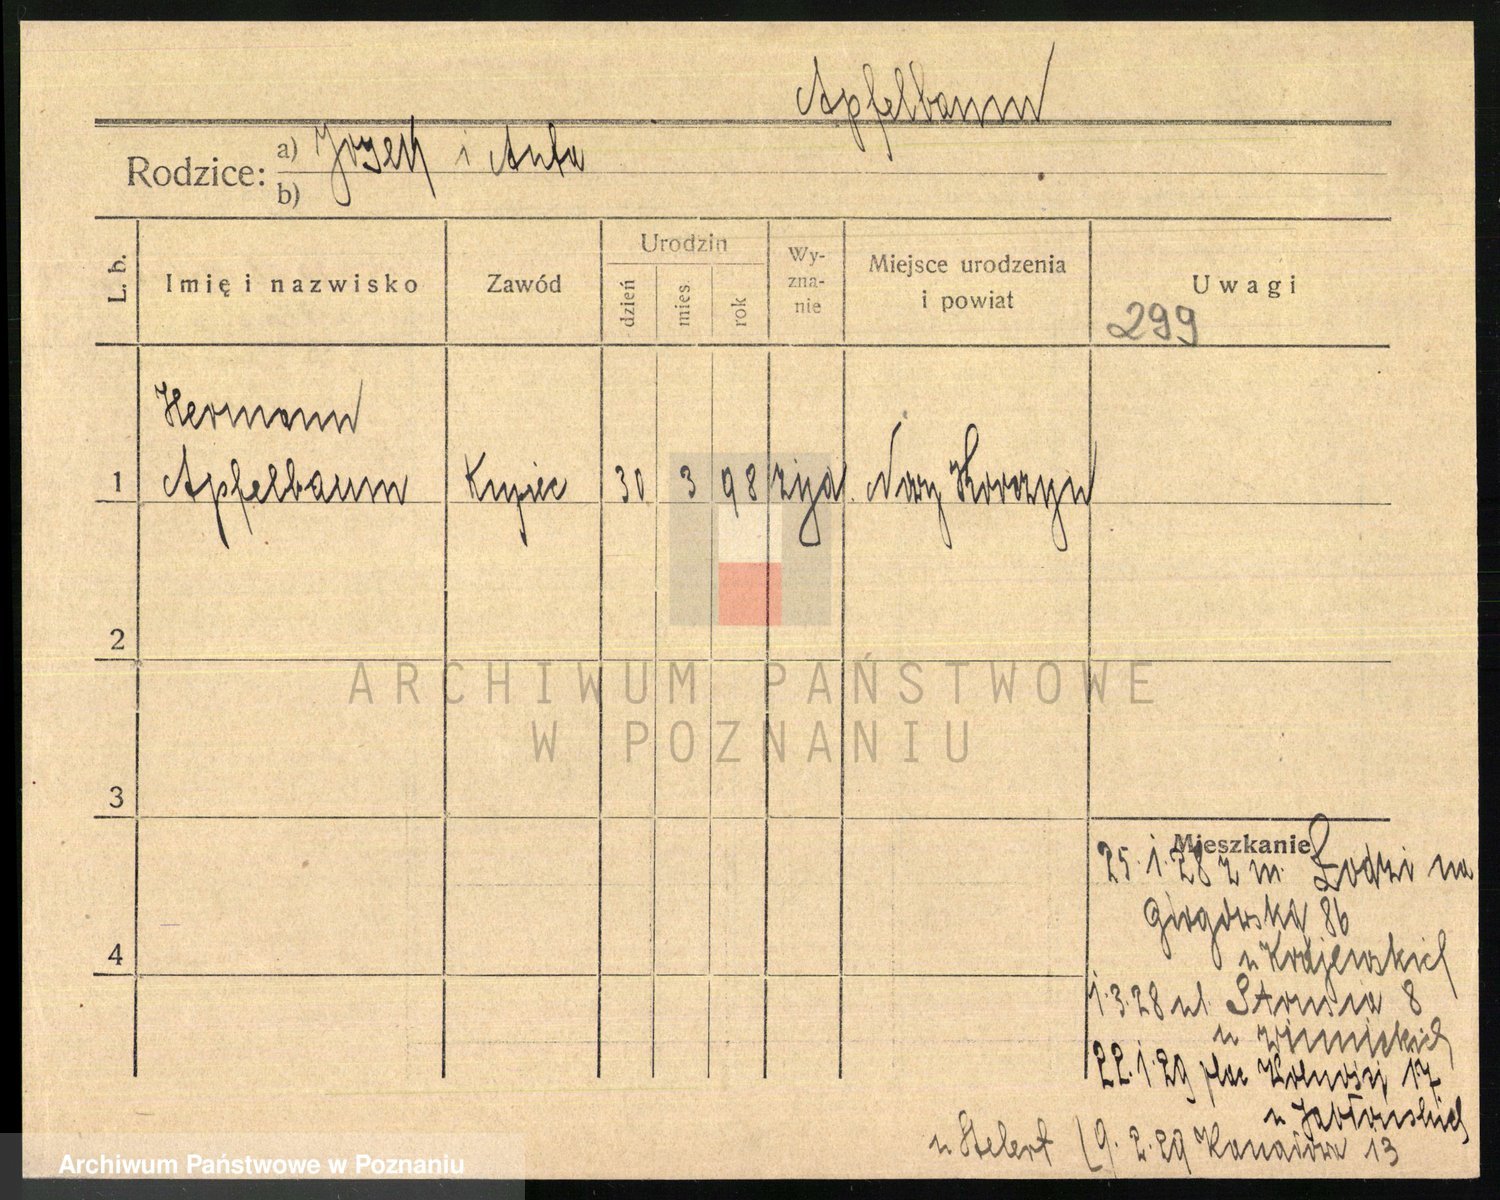 Apfelbaum
Rodzice: a) Józef i Anta
b)
L. b. Imię i nazwisko Zawód Urodzin dzień mies. rok Wy-zna-nie Miejsce urodzenia i powiat Uwagi
299
Hermann
1 Apfelbaum Kupiec 30 3 98 żyd. Nowy Korczyn
2
ARCHIWUM PAŃSTWOWE
W POZNANIU
3
Mieszkanie
25.1.28 z m. Łodzi na
86
4
u Krajewskich
1.3.28 ul. Strusia 8
u
22.1.29 plac Wolności 17
u Jabłońskich
u 9.2.29 13
Archiwum Państwowe w Poznaniu